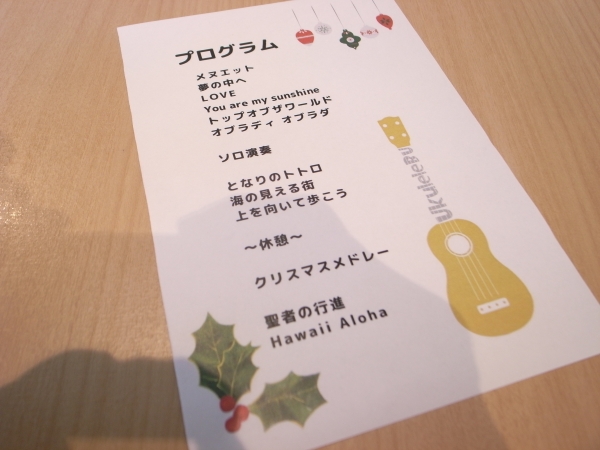 プログラム
メヌエット
夢の中へ
LOVE
You are my sunshine
トップオブザワールド
オブラディ オブラダ
ソロ演奏
となりのトトロ
海の見える街
上を向いて歩こう
～休憩～
クリスマスメドレー
聖者の行進
Hawaii Aloha